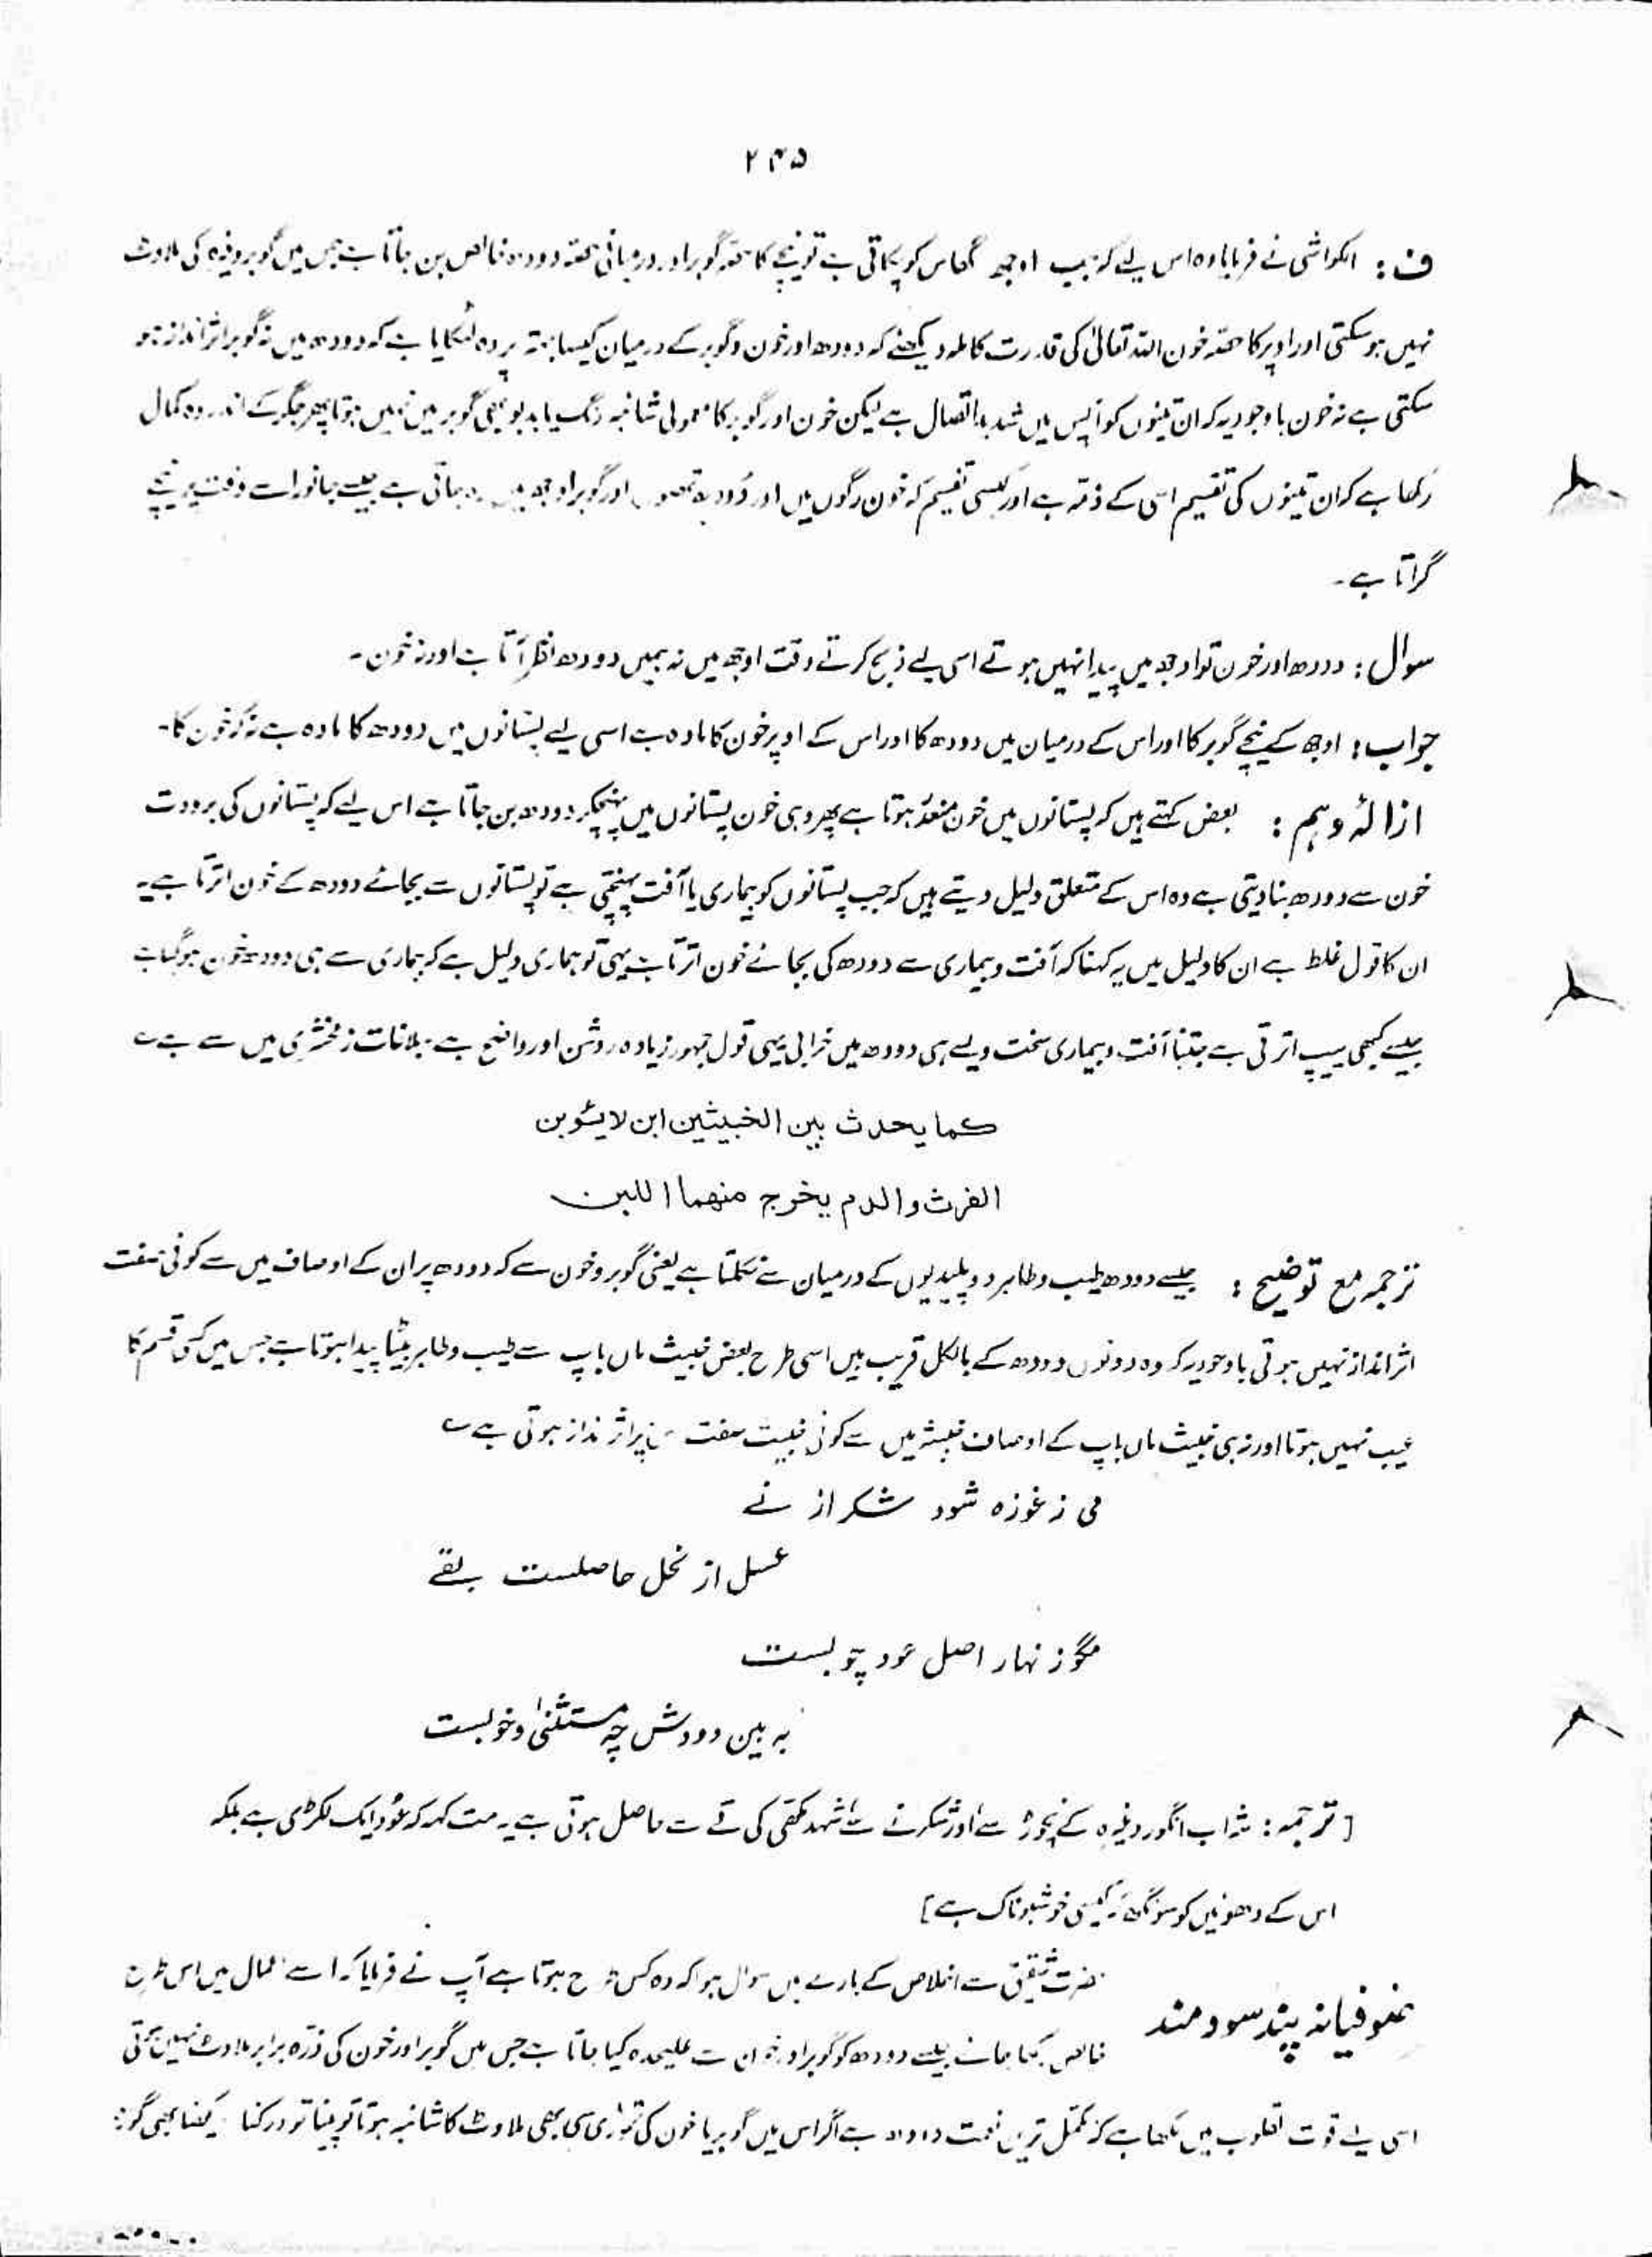 ۲۴۵
ف : الکواشی نے فرمایا وہ اس لیے کہ جب اوجھ گھاس کو پکاتی ہے تو نیچے کا حصہ گوبر اور درمیانی حصہ دودھ خالص بن جاتا ہے جس میں گوبر وغیرہ کی ملاوٹ
نہیں ہو سکتی اور اوپر کا حصہ خون اللہ تعالیٰ کی قدرت کاملہ دیکھئے کہ دودھ اور خون و گوبر کے درمیان کیسا پردہ لٹکایا ہے کہ دودھ میں نہ گوبر اثر انداز ہو
سکتی ہے نہ خون باوجودیکہ ان تینوں کو آپس میں شدید اتصال ہے لیکن خون اور گوبر کا معمولی شائبہ رنگ یا بدبو بھی گوبر میں نہیں ہوتا پھر جگر کے اندر وہ کمال
رکھا ہے کہ ان تینوں کی تقسیم اسی کے ذمہ ہے اور کیسی تقسیم کہ خون رگوں میں اور دودھ تھنوں اور گوبر اوجھ میں رہ جاتی ہے جیسے جانور اسے وقت پر نیچے
گراتا ہے ۔
سوال : دودھ اور خون تو اوجھ میں پیدا نہیں ہوتے اسی لیے ذبح کرتے وقت اوجھ میں نہ ہمیں دودھ نظر آتا ہے اور نہ خون ۔
جواب : اوجھ کے نیچے گوبر کا اور اس کے درمیان میں دودھ کا اور اس کے اوپر خون کا مادہ ہے اسی لیے پستانوں میں دودھ کا مادہ ہے نہ کہ خون کا ۔
ازالۂ وہم : بعض کہتے ہیں کہ پستانوں میں خون منعقد ہوتا ہے پھر وہی خون پستانوں میں پہنچکر دودھ بن جاتا ہے اس لیے کہ پستانوں کی برودت
خون سے دودھ بنا دیتی ہے وہ اس کے متعلق دلیل دیتے ہیں کہ جب پستانوں کو بیماری یا آفت پہنچتی ہے تو پستانوں سے بجائے دودھ کے خون اترتا ہے یہ
ان کا قول غلط ہے ان کا دلیل میں یہ کہنا کہ آفت و بیماری سے دودھ کی بجائے خون اترتا ہے یہی تو ہماری دلیل ہے کہ بیماری سے ہی دودھ خون ہو گیا ہے
جیسے کبھی پیپ اترتی ہے جتنا آفت و بیماری سخت ویسے ہی دودھ میں خرابی یہی قول جمہور زیادہ روشن اور واضح ہے ۔ بلاغات زمخشری میں سے ہے ؎
کما یحدث بین الخبیثین ابن لا یئوبن
الفرث والدم یخرج منھما اللبن
ترجمہ مع توضیح : جیسے دودھ طیب و طاہر دو پلیدیوں کے درمیان سے نکلتا ہے یعنی گوبر و خون سے کہ دودھ پر ان کے اوصاف میں سے کوئی صفت
اثر انداز نہیں ہوتی باوجودیکہ وہ دونوں دودھ کے بالکل قریب ہیں اسی طرح بعض خبیث ماں باپ سے طیب و طاہر بیٹا پیدا ہوتا ہے جس میں کسی قسم کا
عیب نہیں ہوتا اور نہ ہی خبیث ماں باپ کے اوصاف خبیثہ میں سے کوئی خبیث صفت اس پر اثر انداز ہوتی ہے ؎
می ز غوزہ شود شکر از نے
عسل از نحل حاصلست بقے
مگو زنہار اصل عود چوبست
بہ بین دودش چہ مستثنیٰ و خوبست
[ ترجمہ : شراب انگور وغیرہ کے نچوڑ سے اور شکر نے سے شہد مکھی کی قے سے حاصل ہوتی ہے یہ مت کہہ کہ عود ایک لکڑی ہے بلکہ
اس کے دھوئیں کو سونگھ کہ کیسی خوشبوناک ہے ]
صوفیانہ پند سود مند حضرت شقیق سے اخلاص کے بارے میں سوال ہوا کہ وہ کس طرح ہوتا ہے آپ نے فرمایا کہ اسے اعمال میں اس طرح
خالص کیا جائے جیسے دودھ کو گوبر اور خون سے علیحدہ کیا جاتا ہے جس میں گوبر اور خون کی ذرہ برابر ملاوٹ نہیں ہوتی
اسی لیے قوت القلوب میں لکھا ہے کہ مکمل ترین نعمت دودھ ہے اگر اس میں گوبر یا خون کی تھوڑی سی بھی ملاوٹ کا شائبہ ہوتا تو پینا تو درکنار دیکھنا بھی